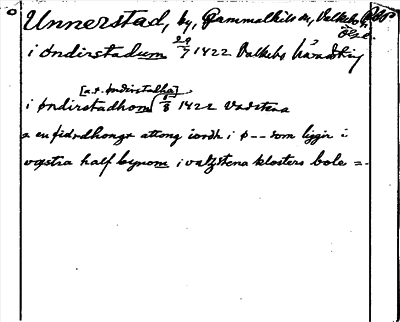 Unnerstad, by, Gammalkils sn, Valkebo hd
Ögl.
i øndirstadum 29/7 1422 Valkebo häradsting
[a.t. øndirstadha]
i øndirstadhom 8/8 1422 Vadstena
= en fiærdhongx attong iordh i ø-- som liggir i
væstra half bynom i vatzstena klosters bole =.